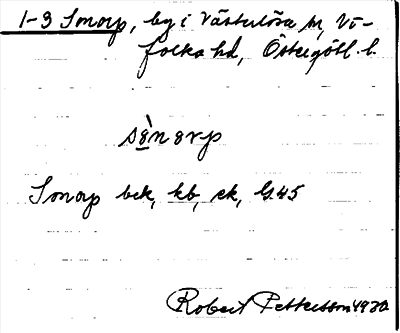 1-3 Smorp, by i Västerlösa sn, Vi-
folka hd, Östergötl. l.
sø̀n ørp
Smorp bek, kb, ek, G.45
Robert Pettersson 1930